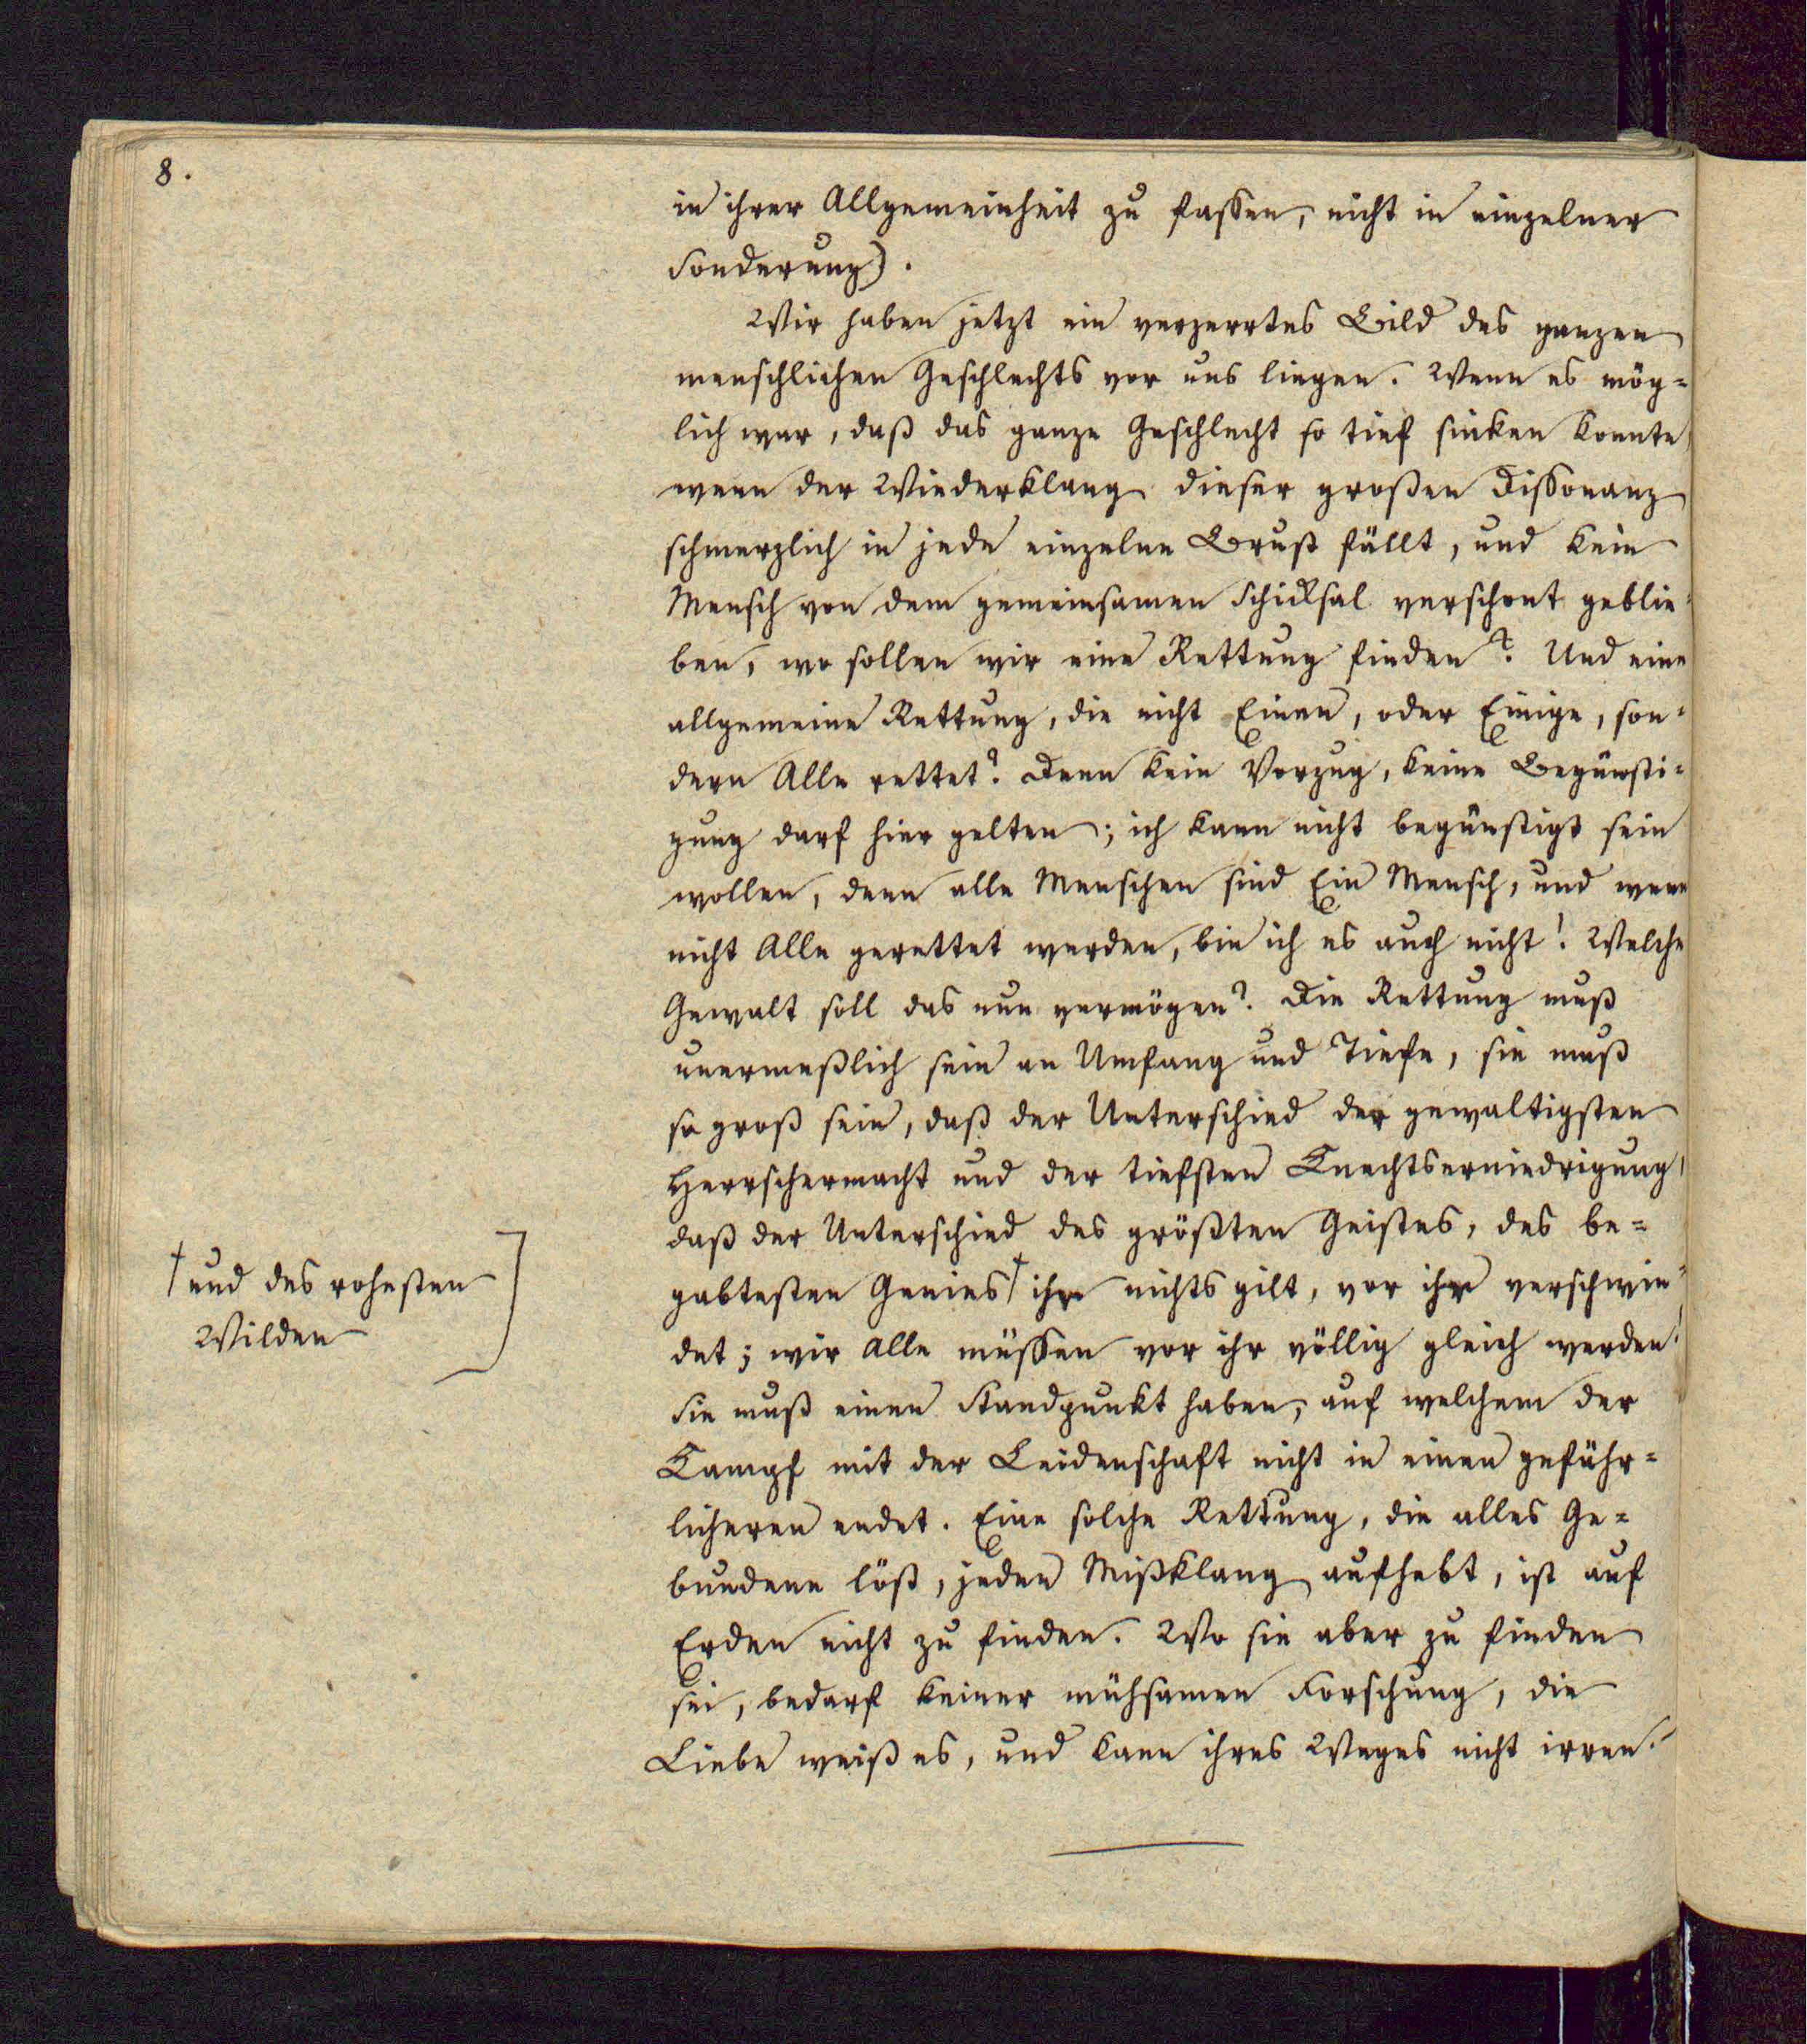 8.
in ihrer Allgemeinheit zu fassen, nicht in einzelner
Sonderung).
Wir haben jetzt ein verzerrtes Bild des ganzen
menschlichen Geschlechts vor uns liegen. Wenn es mög=
lich war, daß das ganze Geschlecht so tief sinken konnte,
wenn der Wiederklang dieser großen Dissonanz
schmerzlich in jede einzelne Brust fällt, und kein
Mensch von dem gemeinsamen Schicksal verschont geblie=
ben, wo sollen wir eine Rettung finden? Und eine
allgemeine Rettung, die nicht Einen, oder Einige, son=
dern Alle rettet? Denn kein Vorzug, keine Begünsti=
gung darf hier gelten; ich kann nicht begünstigt sein
wollen, denn alle Menschen sind Ein Mensch, und wenn
nicht Alle gerettet werden, bin ich es auch nicht! Welche
Gewalt soll das nun vermögen? Die Rettung muß
unermeßlich sein an Umfang und Tiefe, sie muß
so groß sein, daß der Unterschied der gewaltigsten
Herrschermacht und der tiefsten Knechtserniedrigung,
daß der Unterschied des größten Geistes, des be=
gabtesten Genies † ihr nichts gilt, vor ihr verschwin=
det; wir Alle müssen vor ihr völlig gleich werden!
Sie muß einen Standpunkt haben, auf welchem der
Kampf mit der Leidenschaft nicht in einen gefähr=
licheren endet. Eine solche Rettung, die alles Ge=
bundene löst, jeden Mißklang aufhebt, ist auf
Erden nicht zu finden. Wo sie aber zu finden
sei, bedarf keiner mühsamen Forschung, die
Liebe weiß es, und kann ihres Weges nicht irren.
† und des rohesten
Wilden